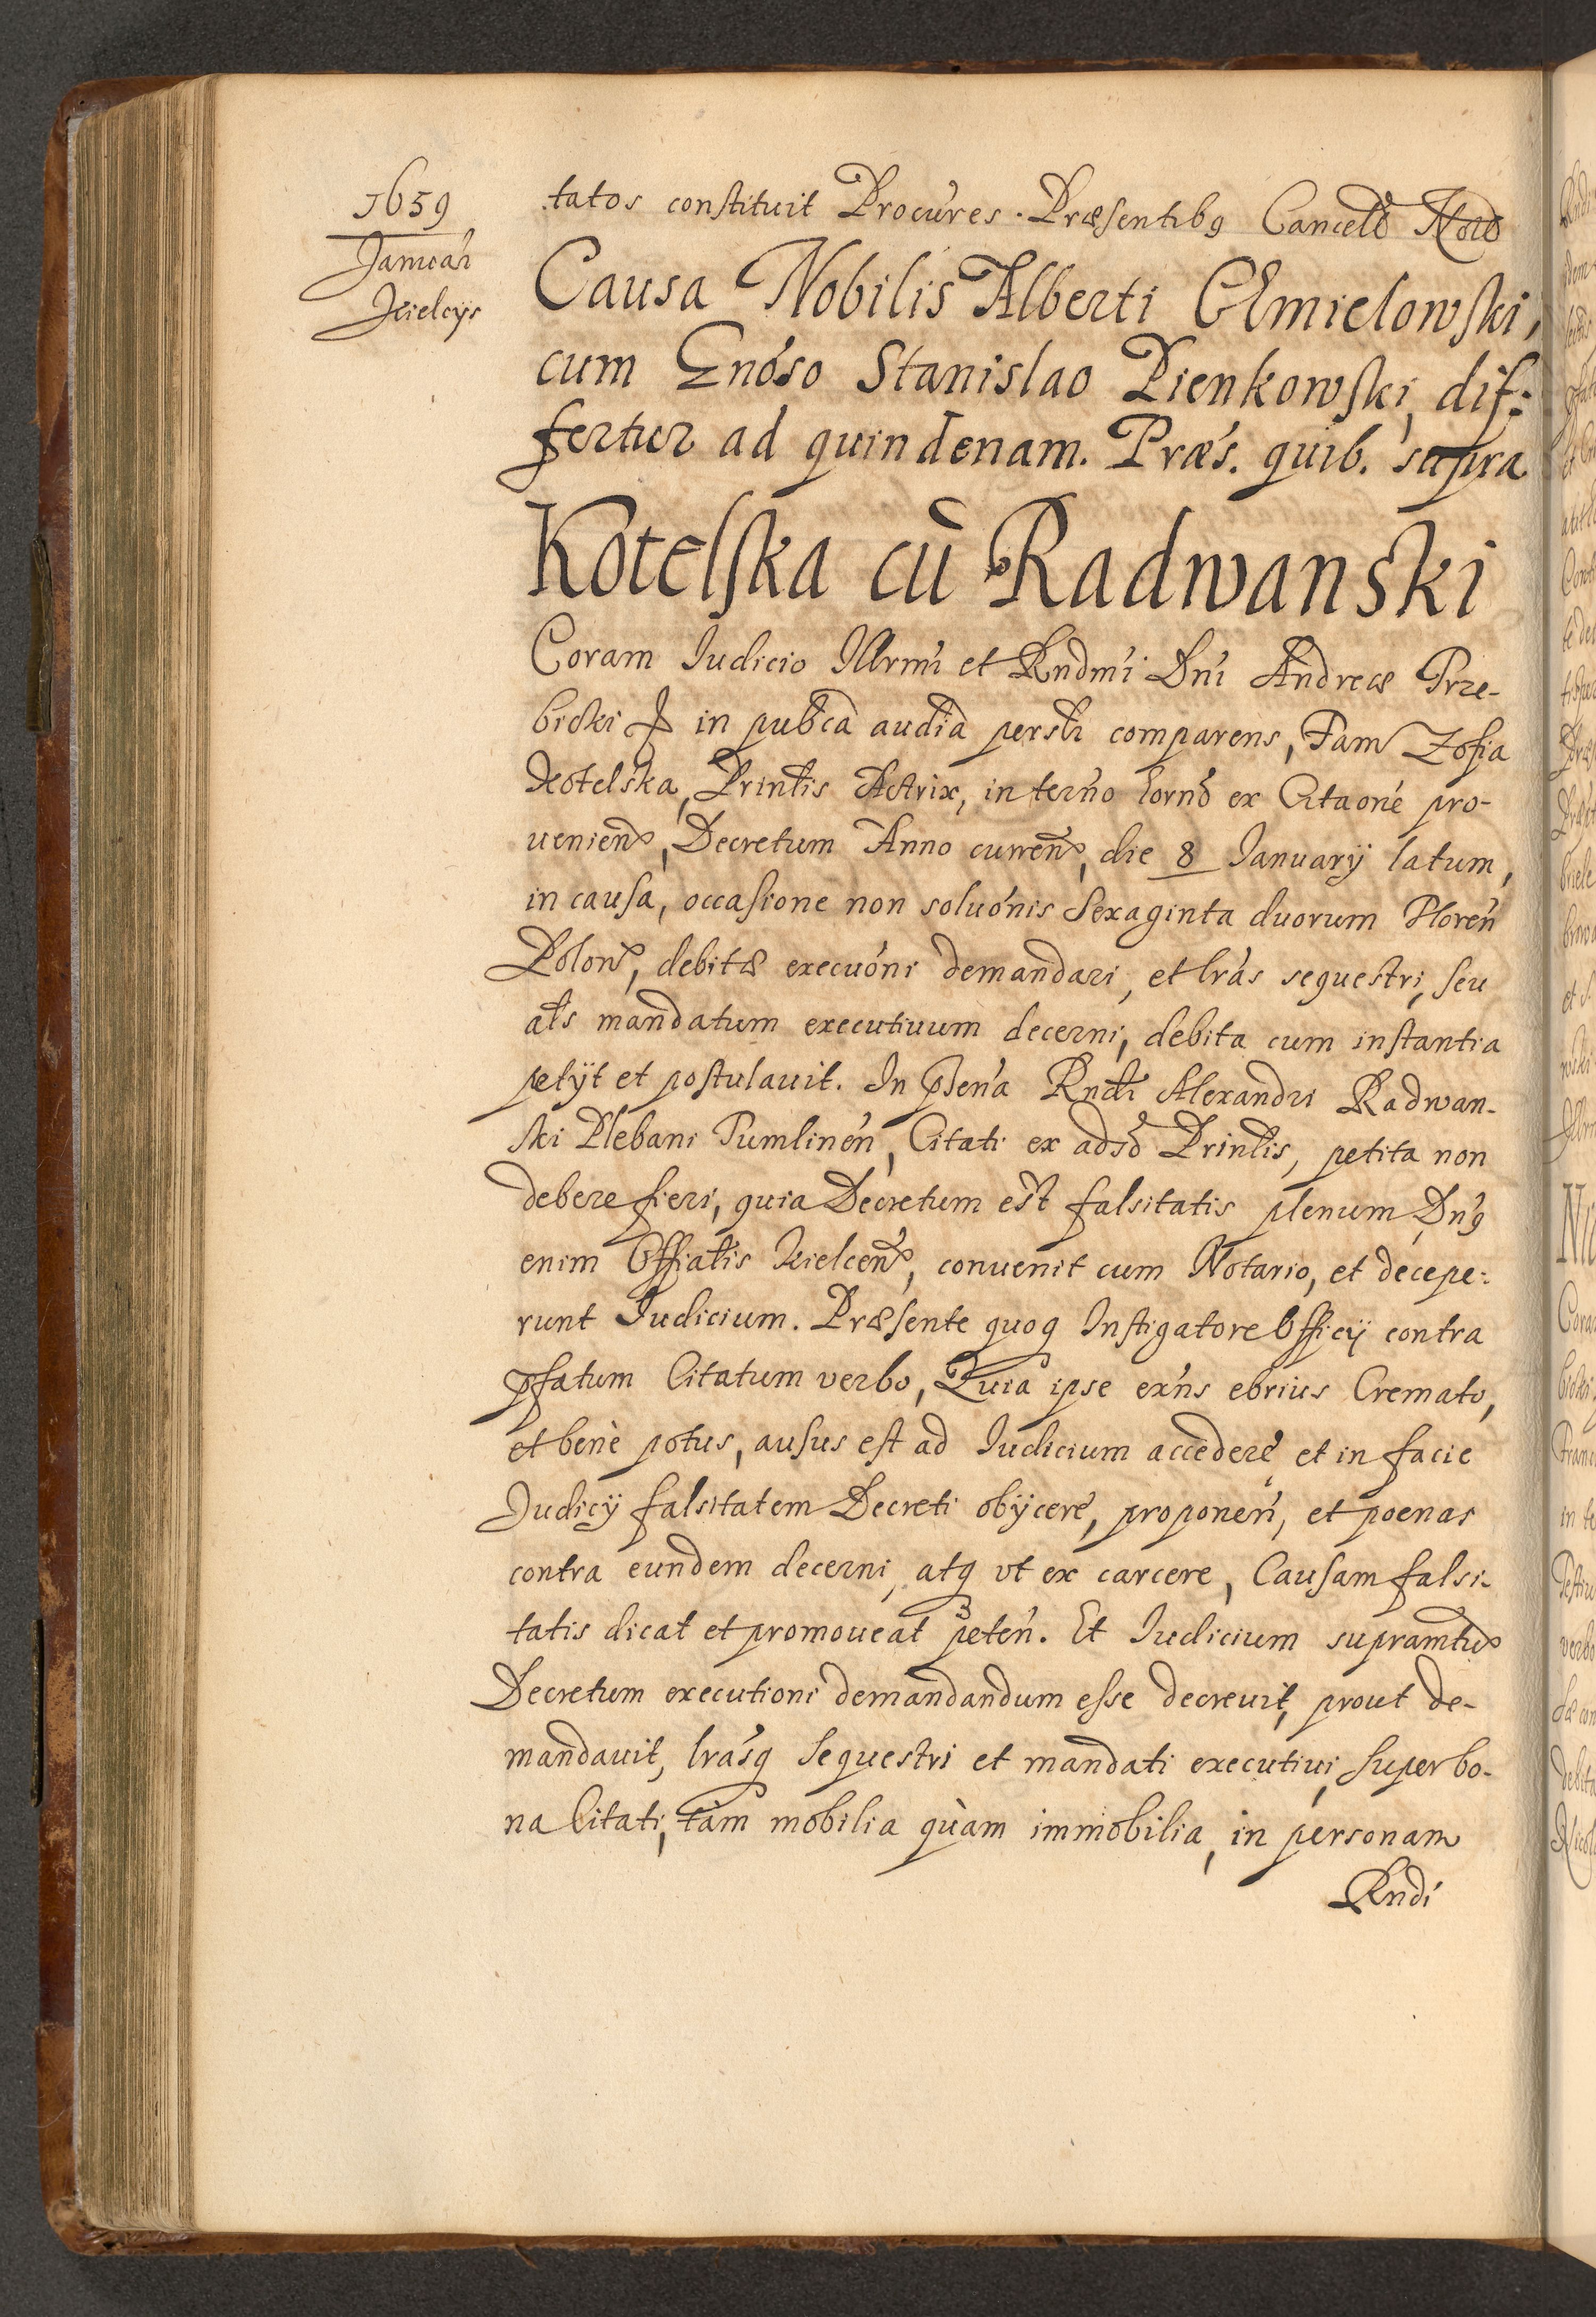 1659
Januar
Kielcijs
tatos constituit Procúres. Præsentibq Cancelľ Notō
Causa Nobilis Alberti Chmielowski,
cum Gnóso Stanislao Pienkowski, dif:
fertur ad quindenam. Præs. quib. supra
Kotelska cū Radwanski
Coram Iudicio Illrmi et Rndmi Dni Andreæ Trze-
bicki in pubca audia persli comparens, Fam Zofia
Kotelska, Prinlis Actrix, in terno horno ex Citaoné pro-
uenien, Decretum Anno curren, die 8 Ianuarij latum,
in causa, occasione non soluónis Sexaginta duorum Floren
Polon, debitæ execuóni demandari, et lrás sequestri, seu
als mandatum executiuum decerni, debita cum instantia
petijt et postulauit. In psena Rndi Alexandri Radwan-
ski Plebani Tumlinen, Citati ex adso Prinlis, petita non
debere fieri, quia Decretum est falsitatis plenum, Dnq
enim Offialis Kielcen, conuenit cum Notario, et decepe:
runt Iudicium. Præsente quoq Instigatore Officij contra
pfatum Citatum verbo, Quia ipse exns ebrius Cremato,
et benè potus, ausus est ad Iudicium accedere et in facie
Judicij falsitatem Decreti obijcere, proponen, et poenas
contra eundem decerni, atq vt ex carcere, Causam falsi-
tatis dicat et promoueat peten. Et Iudicium supramtu
Decretum executioni demandandum esse decreuit, prout de-
mandauit, lrásq sequestri et mandati executiui, super bo-
na Citati, tàm mobilia quàm immobilia, in personam
Rndi